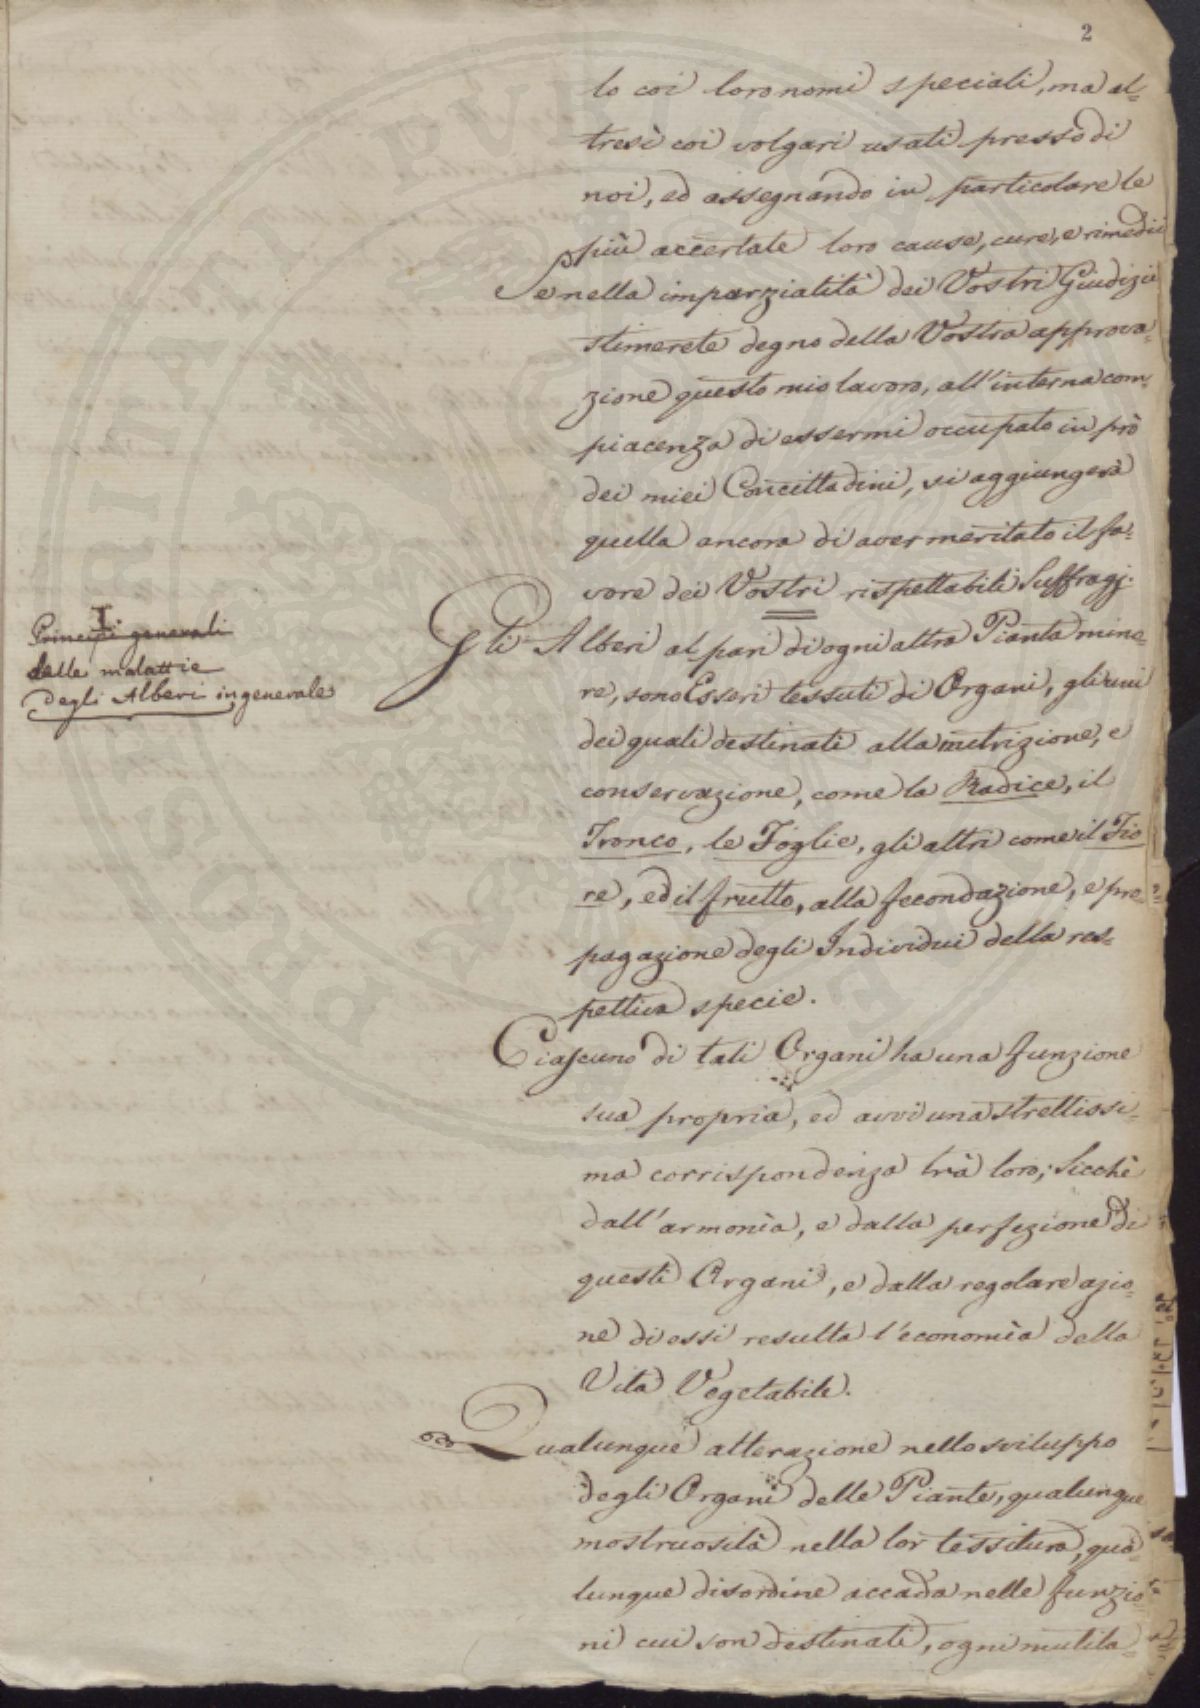 2
lo coi loro nomi speciali, ma al=
tresì coi volgari usati presso di
noi, ed assegnando in particolare le
più accertate loro cause, cure, e rimedii
Se nella imparzialità dei Vostri Giudizii
stimerete degno della Vostra approva=
zione questo mio lavoro, all'interna com=
piacenza di essermi occupato in prò
dei miei Concittadini, si aggiungerà
quella ancora di aver meritato il fa=
vore dei Vostri rispettabili Suffragj.
I.
Principj generali
delle malattie
degli Alberi in generale
Gli Alberi al pari di ogni altra Pianta mino=
re, sono Esseri tessuti di Organi, gli uni
dei quali destinati alla nutrizione, e
conservazione, come la Radice, il
Tronco, le Foglie, gli altri come il Fio
re, ed il frutto, alla fecondazione, e pro=
pagazione degli Individui della res=
pettiva specie.
Ciascuno di tali Organi ha una funzione
sua propria, ed avvi una strettissi=
ma corrispondenza trà loro; Sicchè
dall'armonìa, e dalla perfezione di
questi Organi, e dalla regolare azio=
ne di essi resulta l'economìa della
Vita Vegetabile.
Qualunque alterazione nello sviluppo
degli Organi delle Piante, qualunque
mostruosità nella lor tessitura, qua=
lunque disordine accada nelle funzio=
ni cui son destinati, ogni mutila=